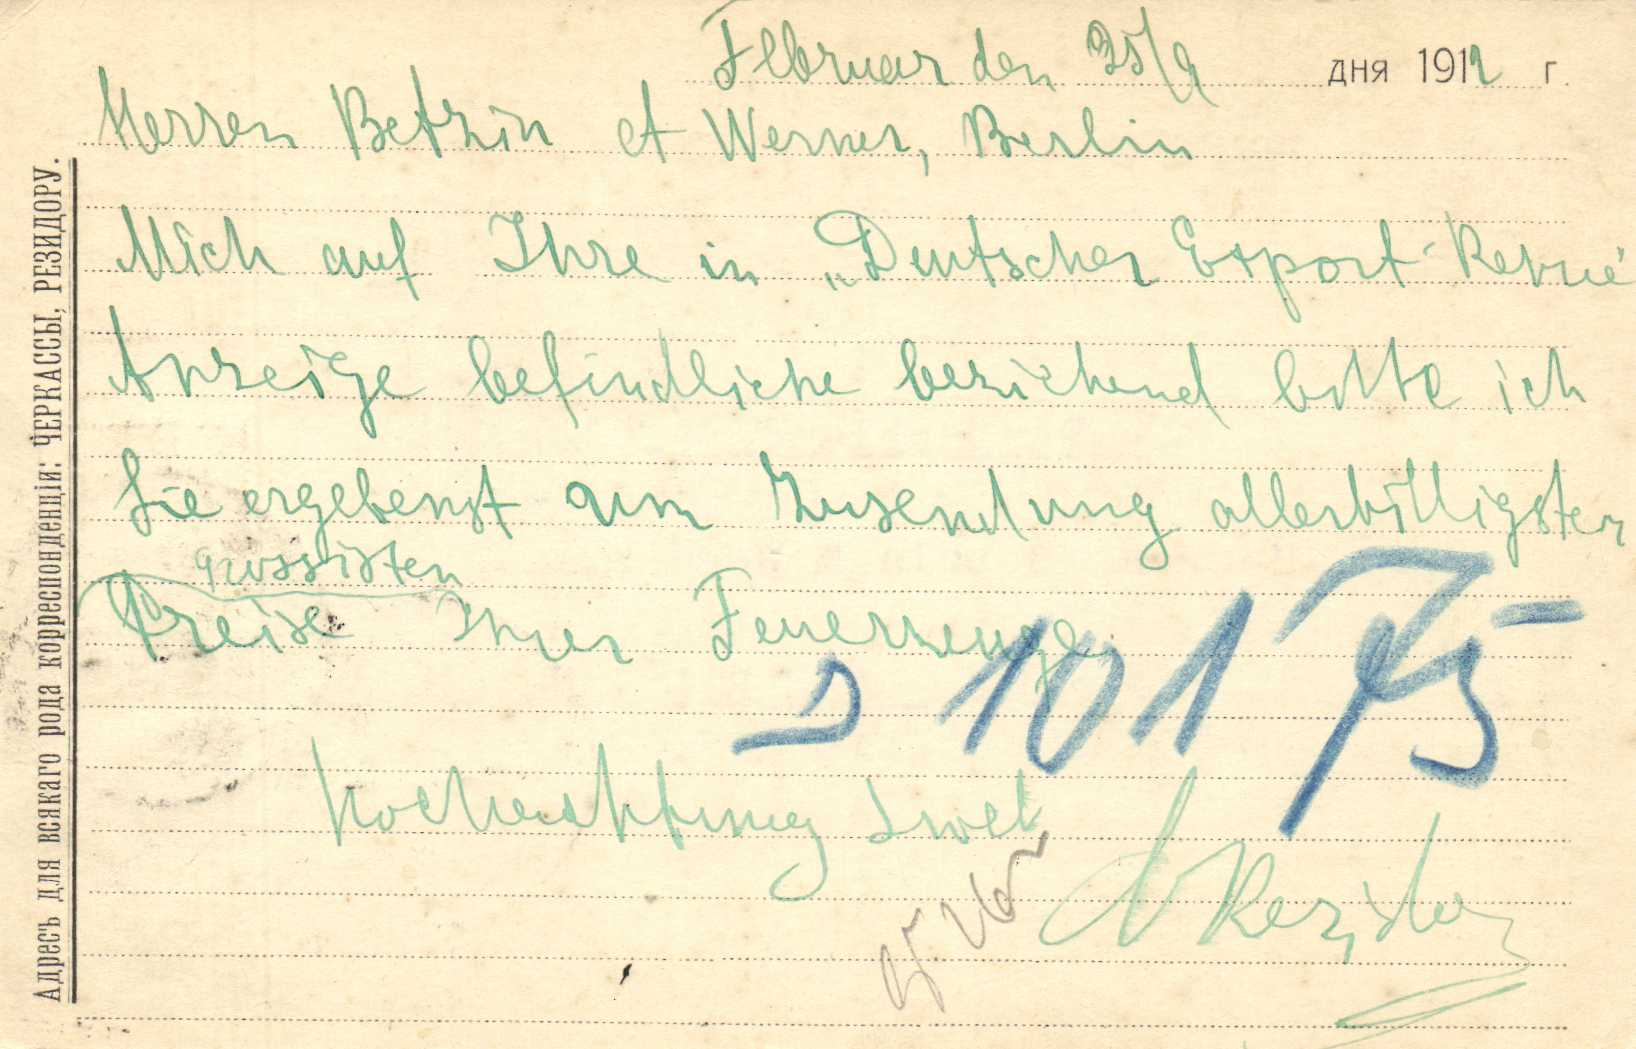 Februar den 25/9 дня 1912 г.
Herren Betzin et Werner, Berlin
Mich auf Ihre in „Deutscher Export-Revue"
Anzeige befindliche beziehend bitte ich
Sie ergebenst um Zusendung allerbilligster
grossisten
Preise Ihrer Feuerzeuge
10175
Hochachtungsvoll
Rezidor
Адресъ для всякаго рода корреспонденціи: ЧЕРКАССЫ, РЕЗИДОРУ.